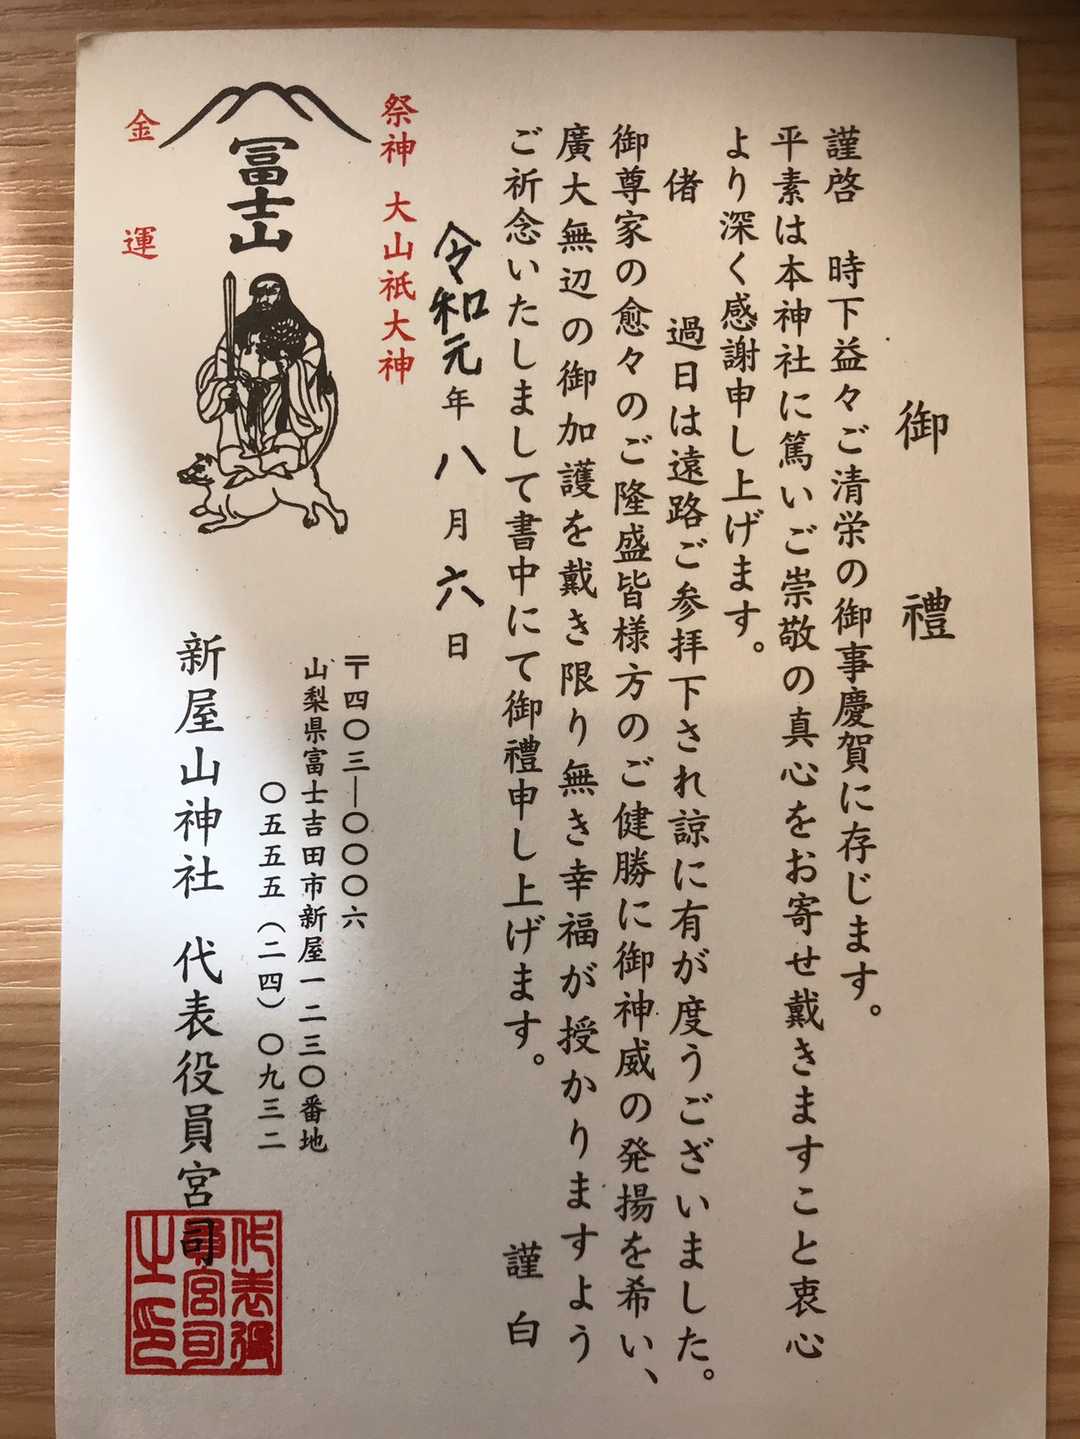 御禮
謹啓　時下益々ご清栄の御事慶賀に存じます。
平素は本神社に篤いご崇敬の真心をお寄せ戴きますこと衷心
より深く感謝申し上げます。
偖　過日は遠路ご参拝下され諒に有が度うございました。
御尊家の愈々のご隆盛皆様方のご健勝に御神威の発揚を希い、
廣大無辺の御加護を戴き限り無き幸福が授かりますよう
ご祈念いたしまして書中にて御禮申し上げます。
謹白
令和元年八月六日
祭神 大山祇大神
冨士山
金運
〒四〇三―〇〇〇六
山梨県富士吉田市新屋一二三〇番地
〇五五五(二四)〇九三二
新屋山神社　代表役員宮司
代表役
員宮司
之印